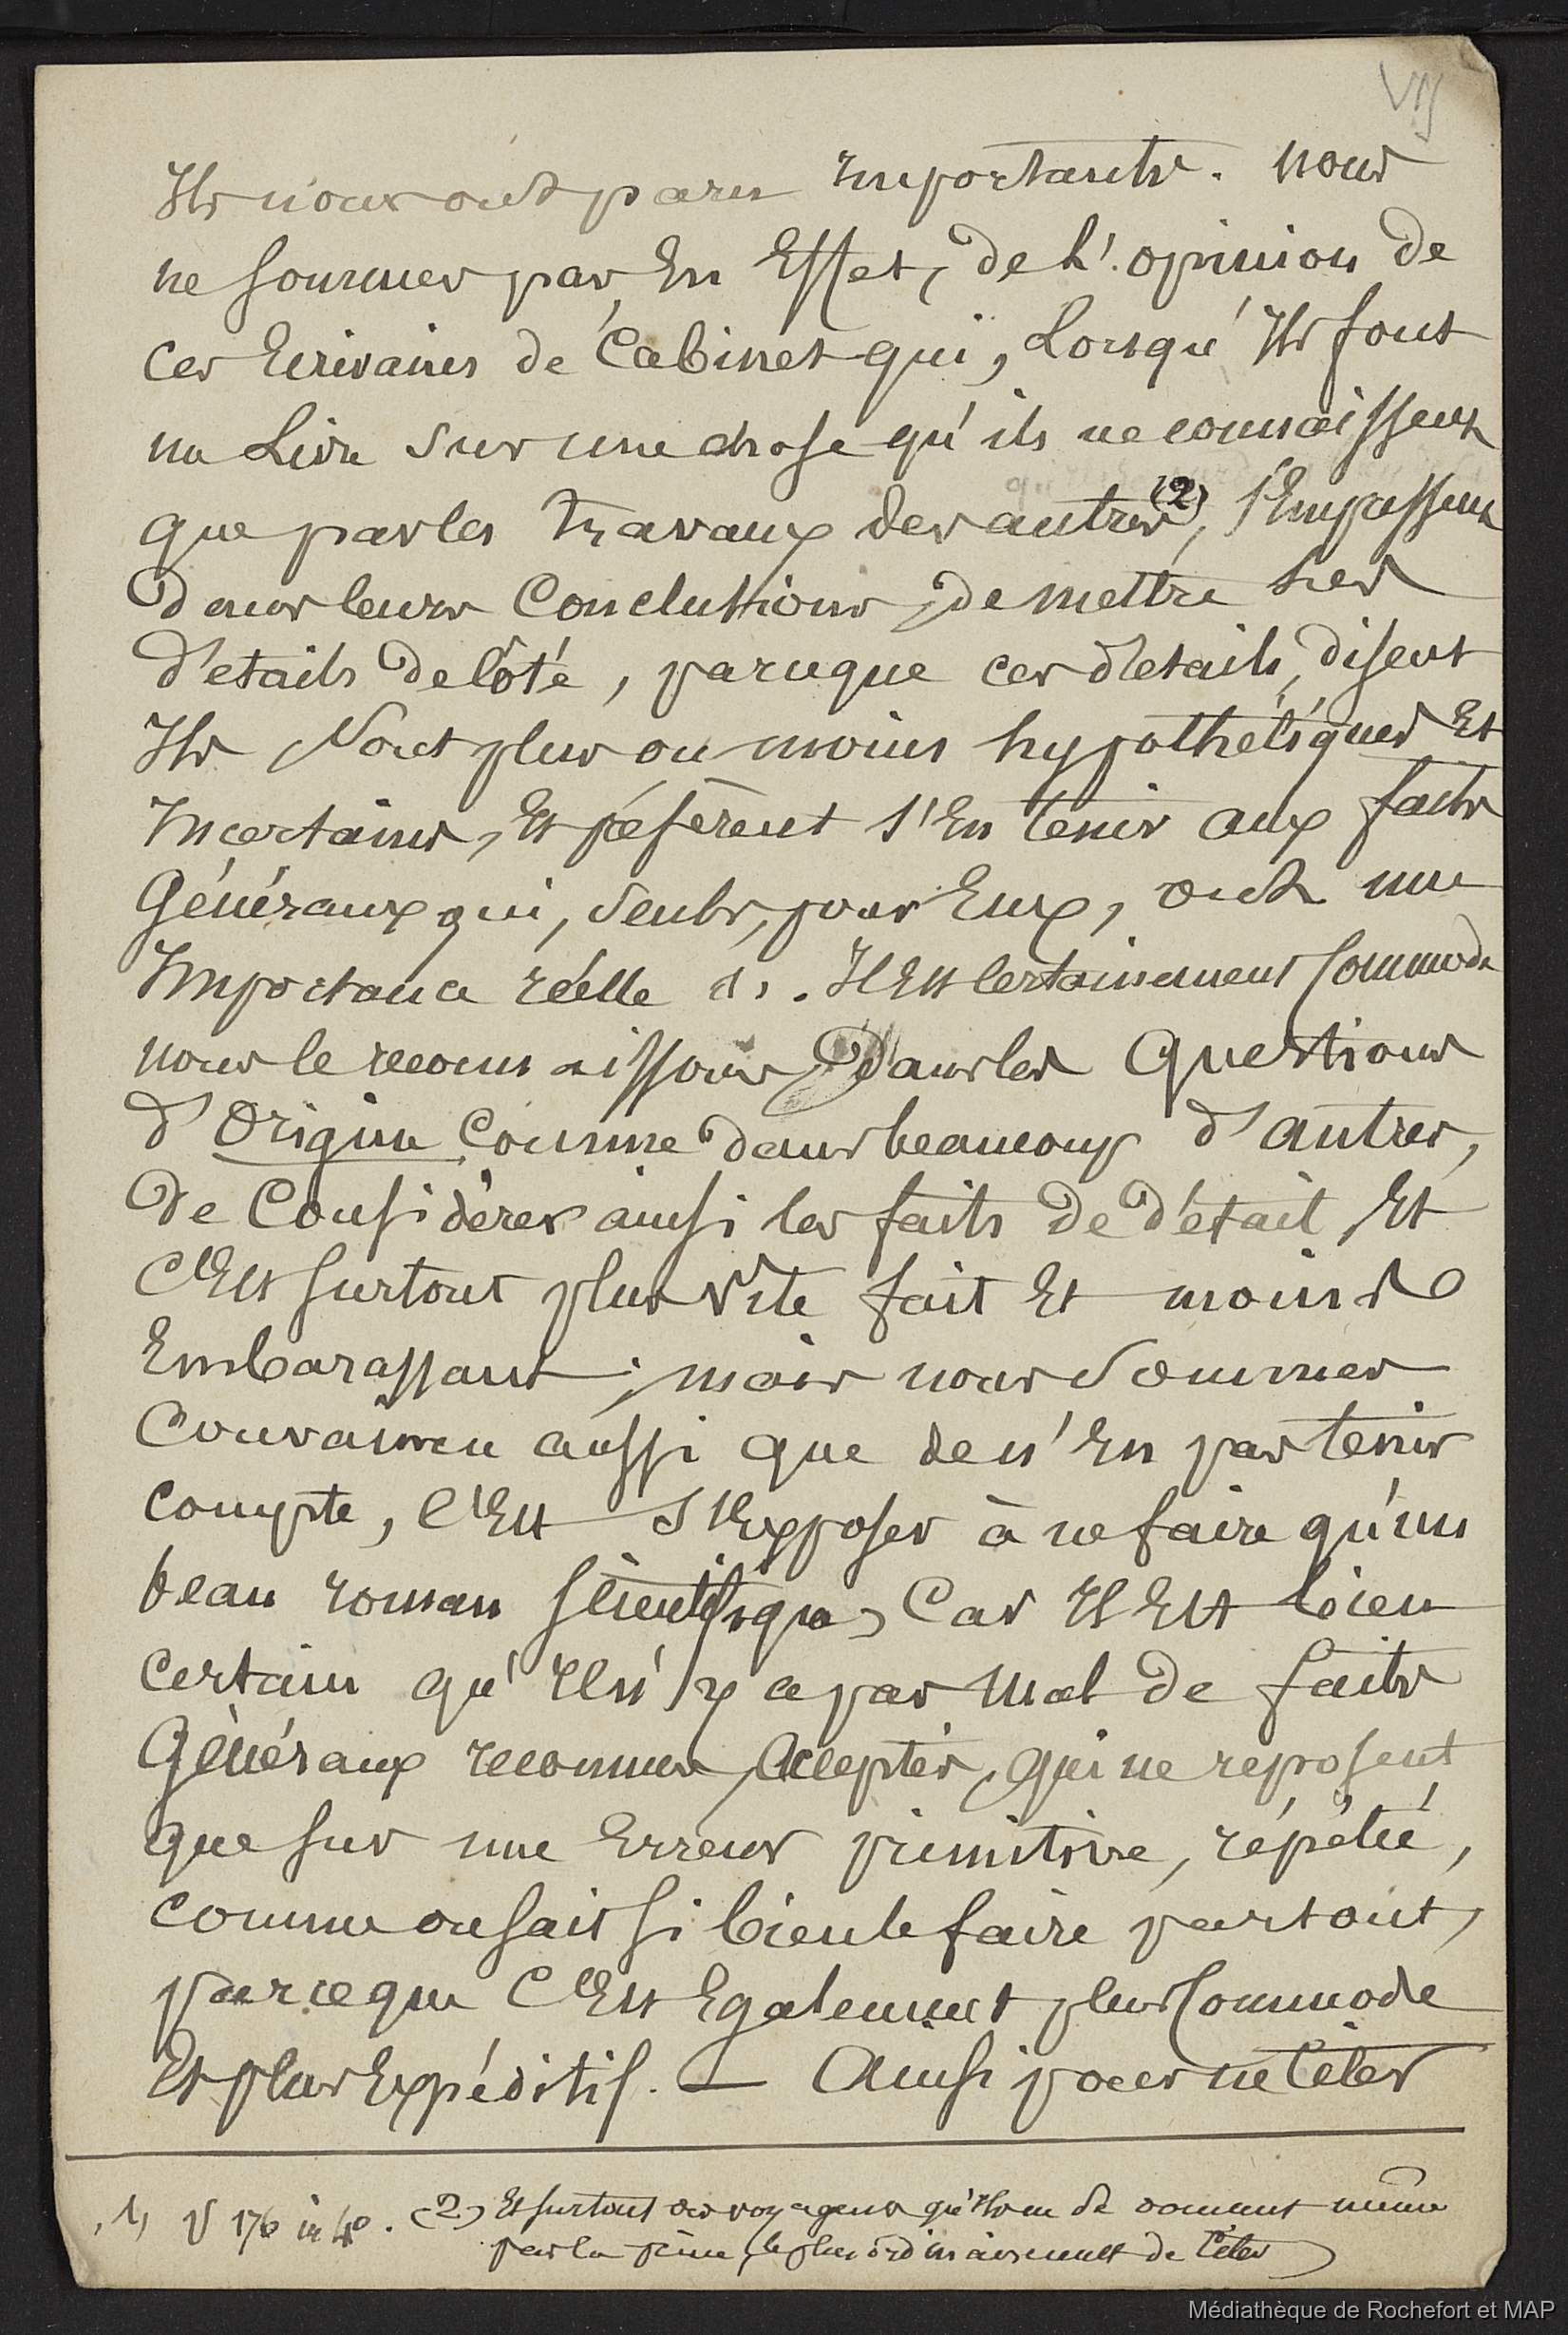 VII
Ils nous ont paru Importants. Nous
ne sommes pas, En Effet, de L'opinion de
ces Ecrivains de Cabinet qui, Lorsqu'Ils font
un Livre sur une chose qu'ils ne connaissent
que par les Travaux des autres (2), s'Empressent
dans leurs Conclusions, de mettre ses
d'etails de Côté, parceque ces d'etails, disent
Ils Sont plus ou moins hypothétiques Et
Incertains, Et préfèrent s'En tenir aux faits
Généraux qui, Seuls, pour Eux, ont une
Importance réelle (1). Il Est Certainement Commode
nous le reconnaissons, dans les Questions
d'Origine Comme dans beaucoup d'autres,
de Considérer ainsi les faits de d'étail, Et
C'Est surtout plus Vite fait Et moins
Embarassant ; mais nous Sommes
Convaincu aussi que de n'En pas tenir
compte, C'Est S'Exposer à ne faire qu'un
beau roman scientifique, Car Il Est bien
certain qu'Il n'y a pas mal de faits
Généraux reconnus, Acceptés, qui ne reposent
que sur une Erreur primitive, répétée,
comme on sait si bien le faire partout,
parceque C'Est Egalement plus Commode
Et plus Expéditif. — Ainsi pour ne Citer
(1) V 176 in 4o. (2) Et surtout des voyageurs qu'Ils ne se donnent même
pas la peine, le plus ordinairement de Citer
Médiathèque de Rochefort et MAP